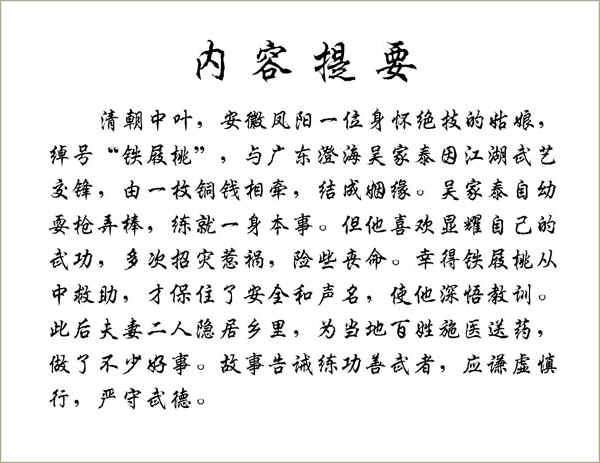 内容提要
清朝中叶，安徽凤阳一位身怀绝技的姑娘，
绰号“铁屐桃”，与广东澄海吴家泰因江湖武艺
交锋，由一枚铜钱相牵，结成姻缘。吴家泰自幼
耍枪弄棒，练就一身本事。但他喜欢显耀自己的
武功，多次招灾惹祸，险些丧命。幸得铁屐桃从
中救助，才保住了安全和声名，使他深悟教训。
此后夫妻二人隐居乡里，为当地百姓施医送药，
做了不少好事。故事告诫练功善武者，应谦虚慎
行，严守武德。